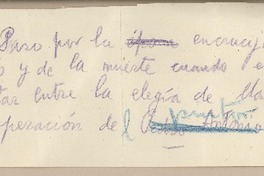 Paso por la encrucij
o y de la muerte cuando e
tar entre la elegía de Ma
peración de